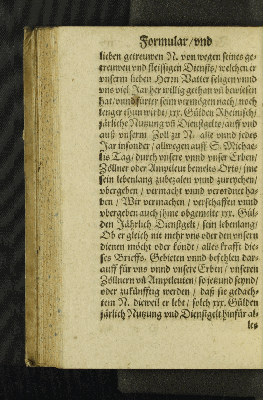 Formular / vnd
lieben getrewen N. von wegen seines ge-
trewen vnd fleissigen Diensts / welchen er
vnserm lieben Herrn Vatter seligen vnnd
vns viel Jar her willig gethan vñ bewiesen
hat / vnnd fürter seim vermögen nach / noch
lenger thun wirdt / xxx. Gülden Rheinisch /
järliche Nutzung vñ Dienstgelts / auff vnd
auß vnserm Zoll zu N. alle vnnd jedes
Jar insonder / allwegen auff S. Michae-
lis Tag / durch vnsere vnnd vnser Erben /
Zöllner oder Amptleut bemeltes Orts / jme
sein lebenlang zubezalen vnnd zureychen /
vbergeben / vermacht vnnd verordnet ha-
ben / Wir vermachen / verschaffen vnnd
vbergeben auch jhme obgemelte xxx. Gül-
den Jährlich Dienstgelt / sein lebenlang /
Ob er gleich nit mehr vns oder den vnsern
dienen möcht oder köndt / alles krafft die-
ses Brieffs. Gebieten vnnd befehlen dar-
auff für vns vnnd vnsere Erben / vnseren
Zöllnern vñ Amptleuten / so jetzund seynd /
oder zukünfftig werden / daß sie gedach-
tem N. dieweil er lebt / solch xxx. Gülden
järlich Nutzung vnd Dienstgelt hinfür al-
les